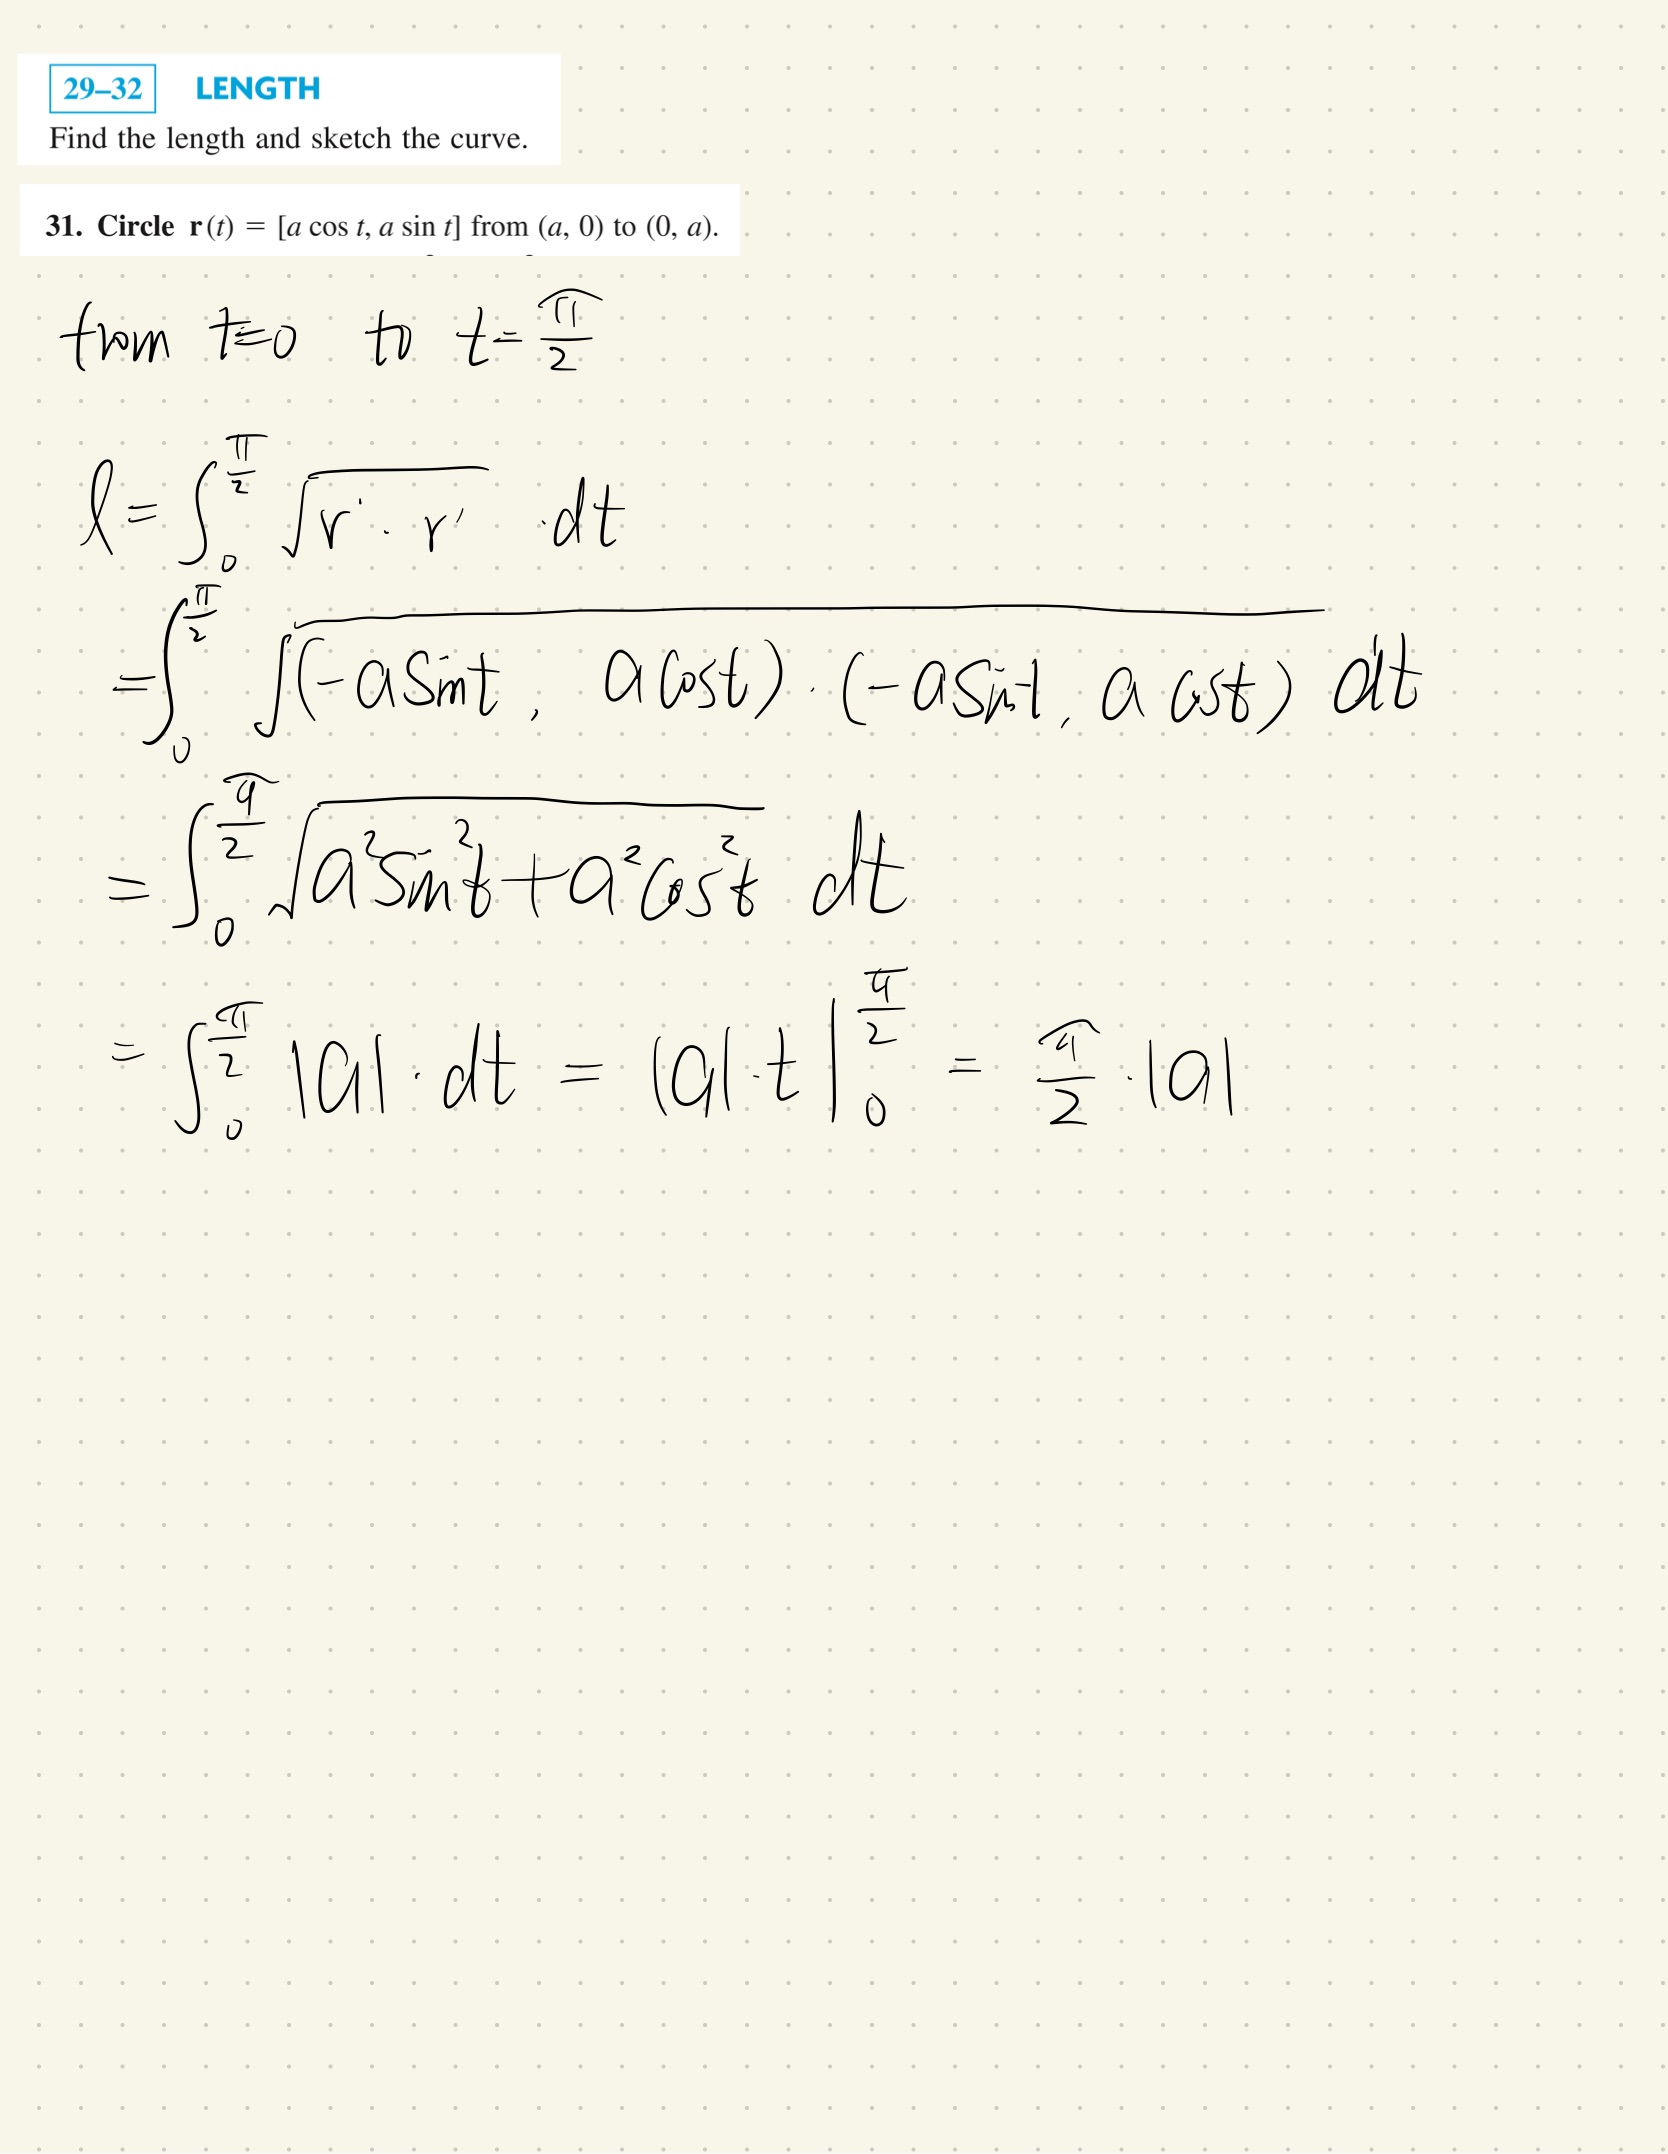 29–32 LENGTH
Find the length and sketch the curve.
31. Circle r(t) = [a cos t, a sin t] from (a, 0) to (0, a).
from t=0 to t= π/2
l = ∫₀^(π/2) √(r' · r') · dt
= ∫₀^(π/2) √((-a sin t, a cos t) · (-a sin t, a cos t)) dt
= ∫₀^(π/2) √(a² sin² t + a² cos² t) dt
= ∫₀^(π/2) |a| · dt = |a| · t |₀^(π/2) = π/2 · |a|